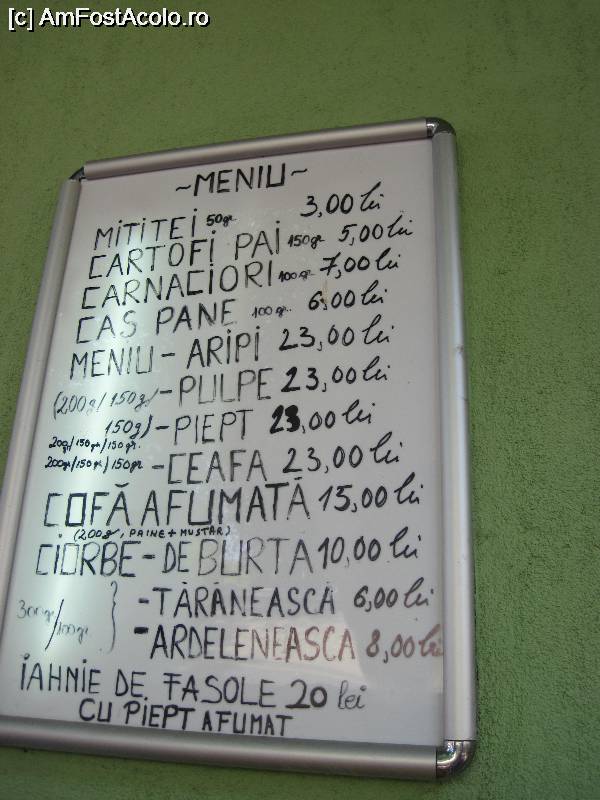 [c] AmFostAcolo.ro
~MENIU~
MITITEI 50gr 3,00 lei
CARTOFI PAI 150gr 5,00 lei
CARNACIORI 100gr 7,00 lei
CAS PANE 100gr. 6,00 lei
MENIU - ARIPI 23,00 lei
(200g/150g/ -PULPE 23,00 lei
150g) -PIEPT 23,00 lei
200g/150gr/150gr.
200gr/150gr/150gr -CEAFA 23,00 lei
COFĂ AFUMATĂ 15,00 lei
(200g, PAINE + MUSTAR)
CIORBE - DE BURTA 10,00 lei
300gr/100gr. } -TĂRĂNEASCĂ 6,00 lei
-ARDELENEASCA 8,00 lei
IAHNIE DE FASOLE 20 lei
CU PIEPT AFUMAT